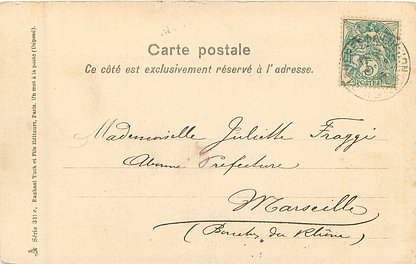 Carte postale
Ce côté est exclusivement réservé à l'adresse.
Mademoiselle Juliette Froggi
Préfecture
Marseille
(Bouches du Rhône)
Série 311 c. Raphael Tuck et Fils Editeurs, Paris. Un mot à la poste (Déposé).
5
POSTES